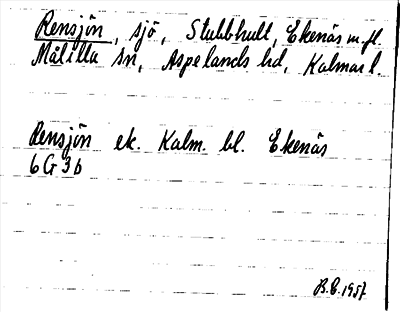 Rensjön, sjö, Stubbhult, Ekenäs m. fl.
Målilla sn, Aspelands hd, Kalmar l.
Rensjön ek. Kalm. bl. Ekenäs
6G3b
B.E. 1957